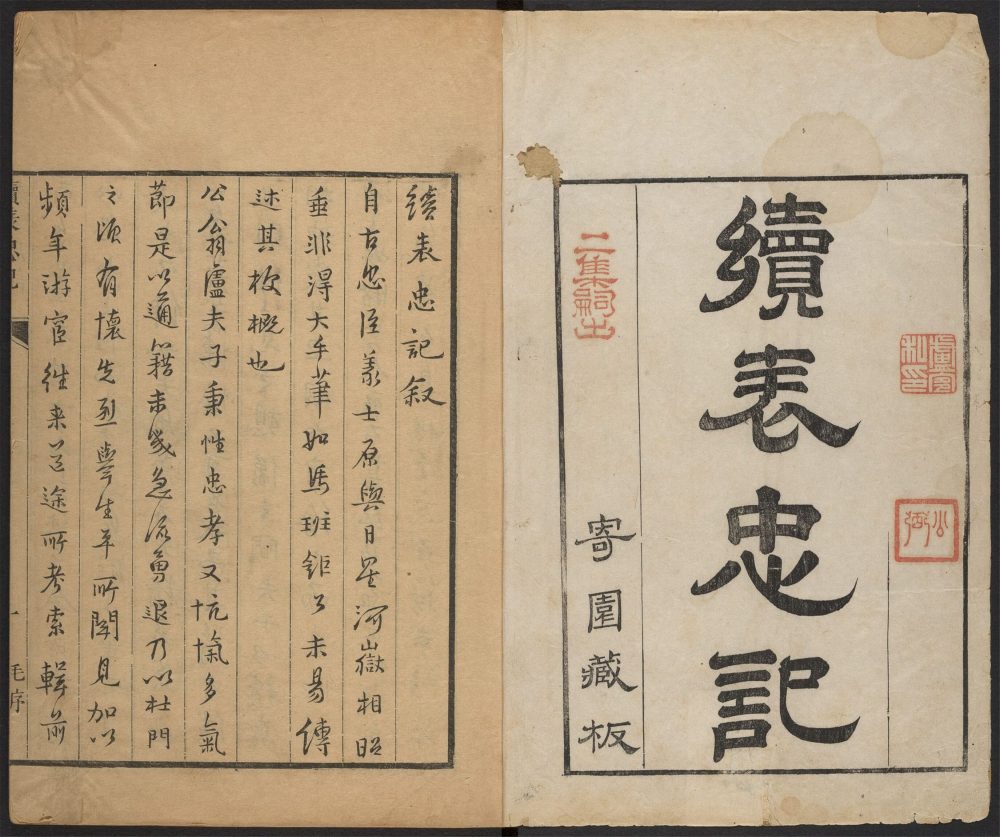 續表忠記
二集嗣出
寄園藏板
公弼
續表忠記叙
自古忠臣義士原與日星河嶽相昭
垂非得大手筆如馬班鉅公未易傳
述其梗概也
公翁盧夫子秉性忠孝又忼愾多氣
節是以通籍未幾急流勇退乃以杜門
之頃有懷先烈舉生平所聞見加以
頻年游宦往来道途所考索輯前
續表忠記
一
毛序